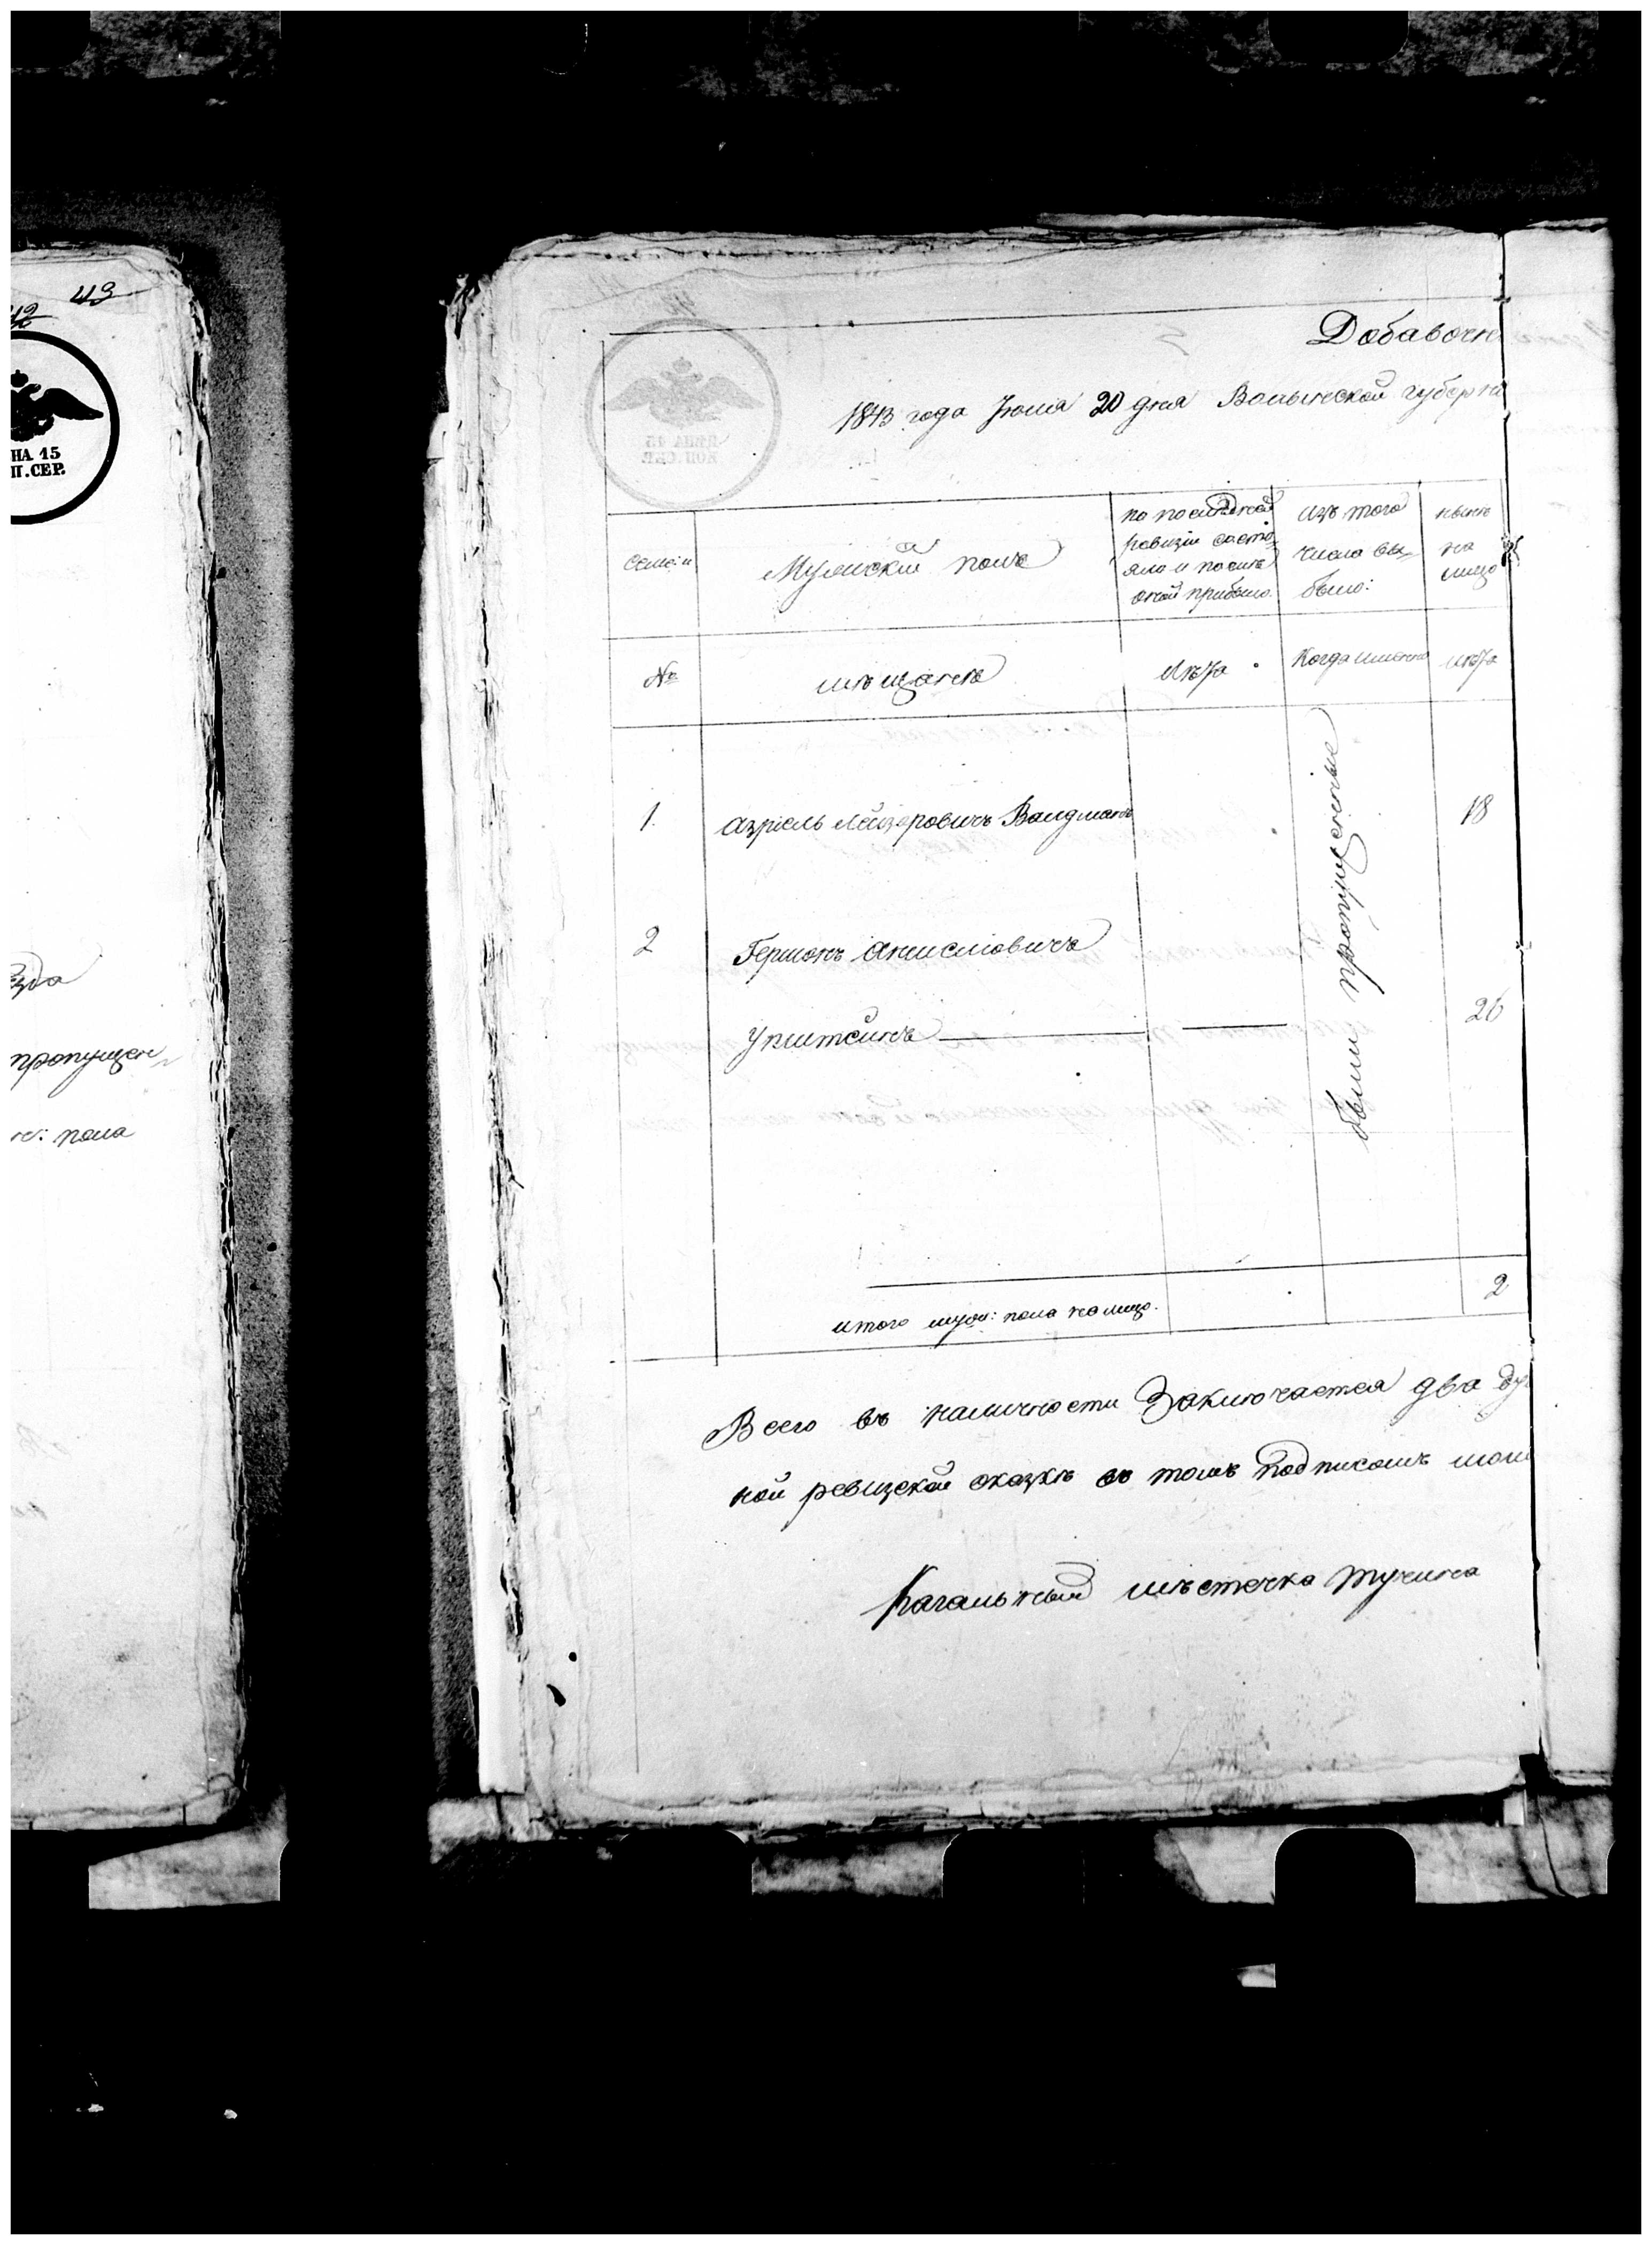 43
42
НА 15
П. СЕР.
зда
пропущен
: пола
Добавочн
1843 года Июля 20 дня Волынской губерн
семеи
Мужский полъ
по последней
ревизіи состо
яло и после
оной прибыло.
изъ того
числа вы
было:
ныне
на
лицо
№
мѣщане
лѣта
Когда именно
лѣта
1.
Азріель Лейзеровичъ Валдманъ
18
2
Гершонъ Аншелювичъ
Упштейнъ
26
были пропущенные
итого муж: пола на лицо.
2
Всего въ наличности Заключается два ду
ной ревизской сказкѣ въ томъ подписомъ
Кагальный мѣстечка Тучина